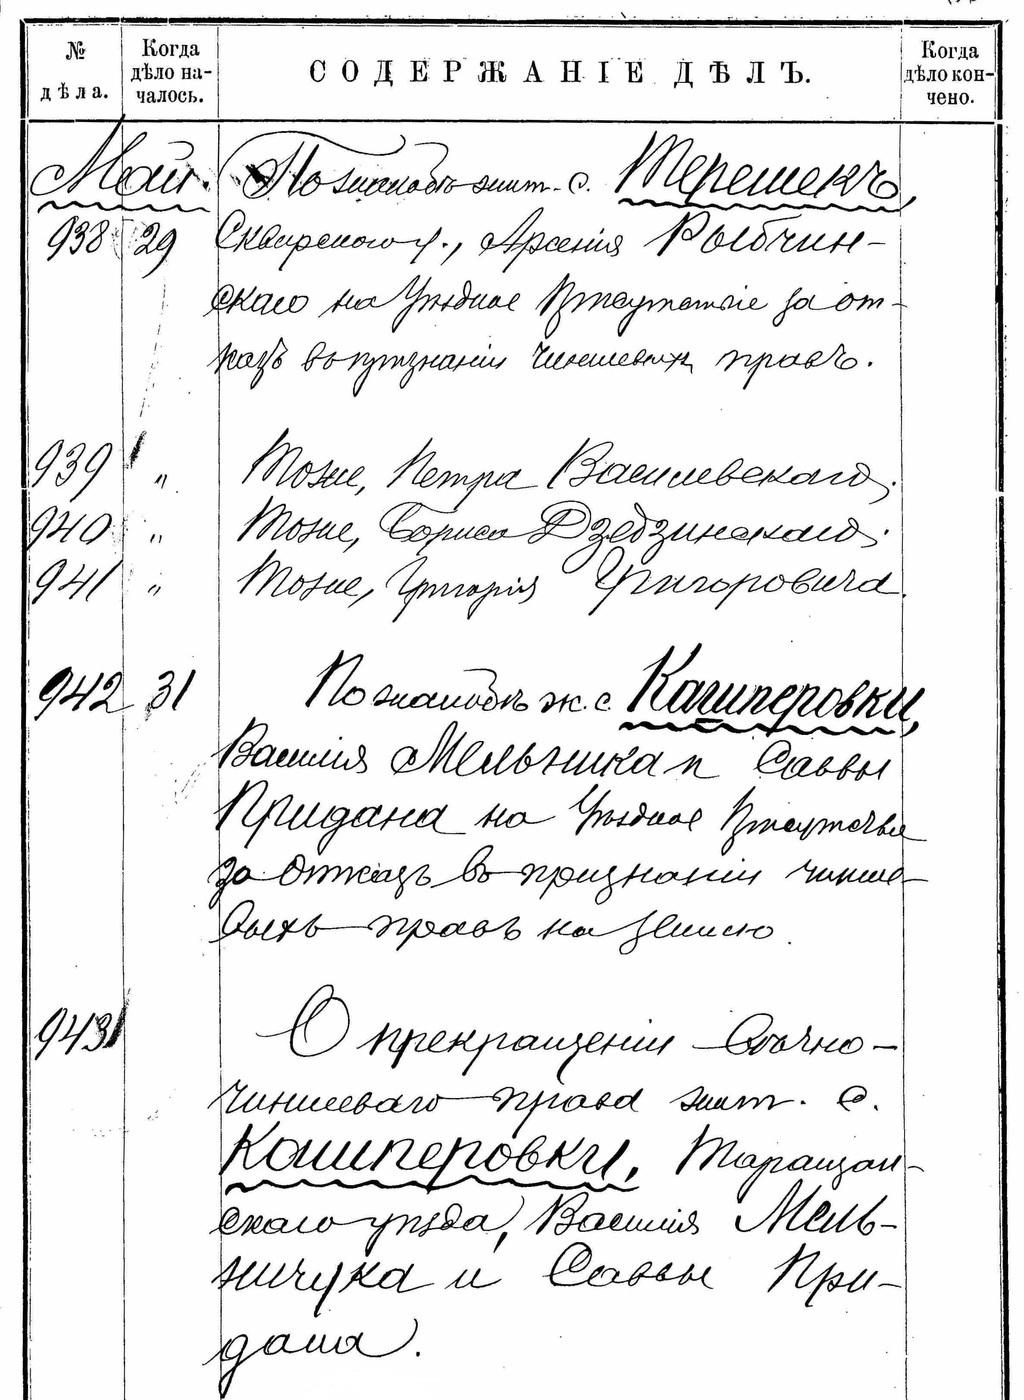 № дѣла.
Когда дѣло на-
чалось.
СОДЕРЖАНІЕ ДѢЛЪ.
Когда дѣло кон-
чено.
Май. По жалобѣ жит. с. Терешекъ,
938 29 Сквирскаго у., Арсенія Рыбчин-
скаго на Уѣздное Присутствіе за от-
казъ въ признаніи чиншевыхъ правъ.
939 " Тоже, Петра Василевскаго.
940 " Тоже, Бориса Дзедзинскаго.
941 " Тоже, Григорія Григоровича.
942 31 По жалобѣ ж. с. Кашперовки,
Василія Мельника и Саввы
Придана на Уѣздное Присутствіе
за отказъ въ признаніи чинше-
выхъ правъ на землю.
943 О прекращеніи вѣчно-
чиншеваго права жит. с.
Кашперовки, Таращан-
скаго уѣзда, Василія Мель-
ничука и Саввы При-
дана.